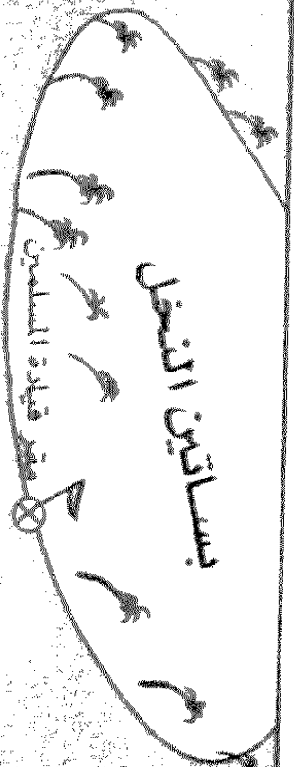 بساتين النخيل
مقر قيادة المسلمين